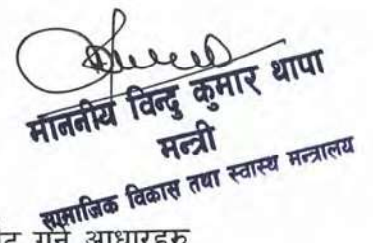 माननीय विन्दु कुमार थापा
मन्त्री
सामाजिक विकास तथा स्वास्थ मन्त्रालय
गर्ने आधारहरु